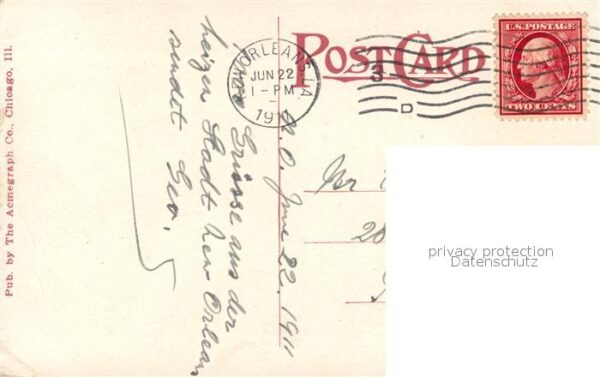 POST CARD
U.S. POSTAGE
TWO CENTS
NEW ORLEANS, LA.
JUN 22
1-PM
191
3
D
N. O. June 22. 1911
Grüsse aus der
heizen Stadt New Orleans
sendet Geo.
Mr
20
privacy protection
Datenschutz
Pub. by The Acmegraph Co., Chicago, Ill.